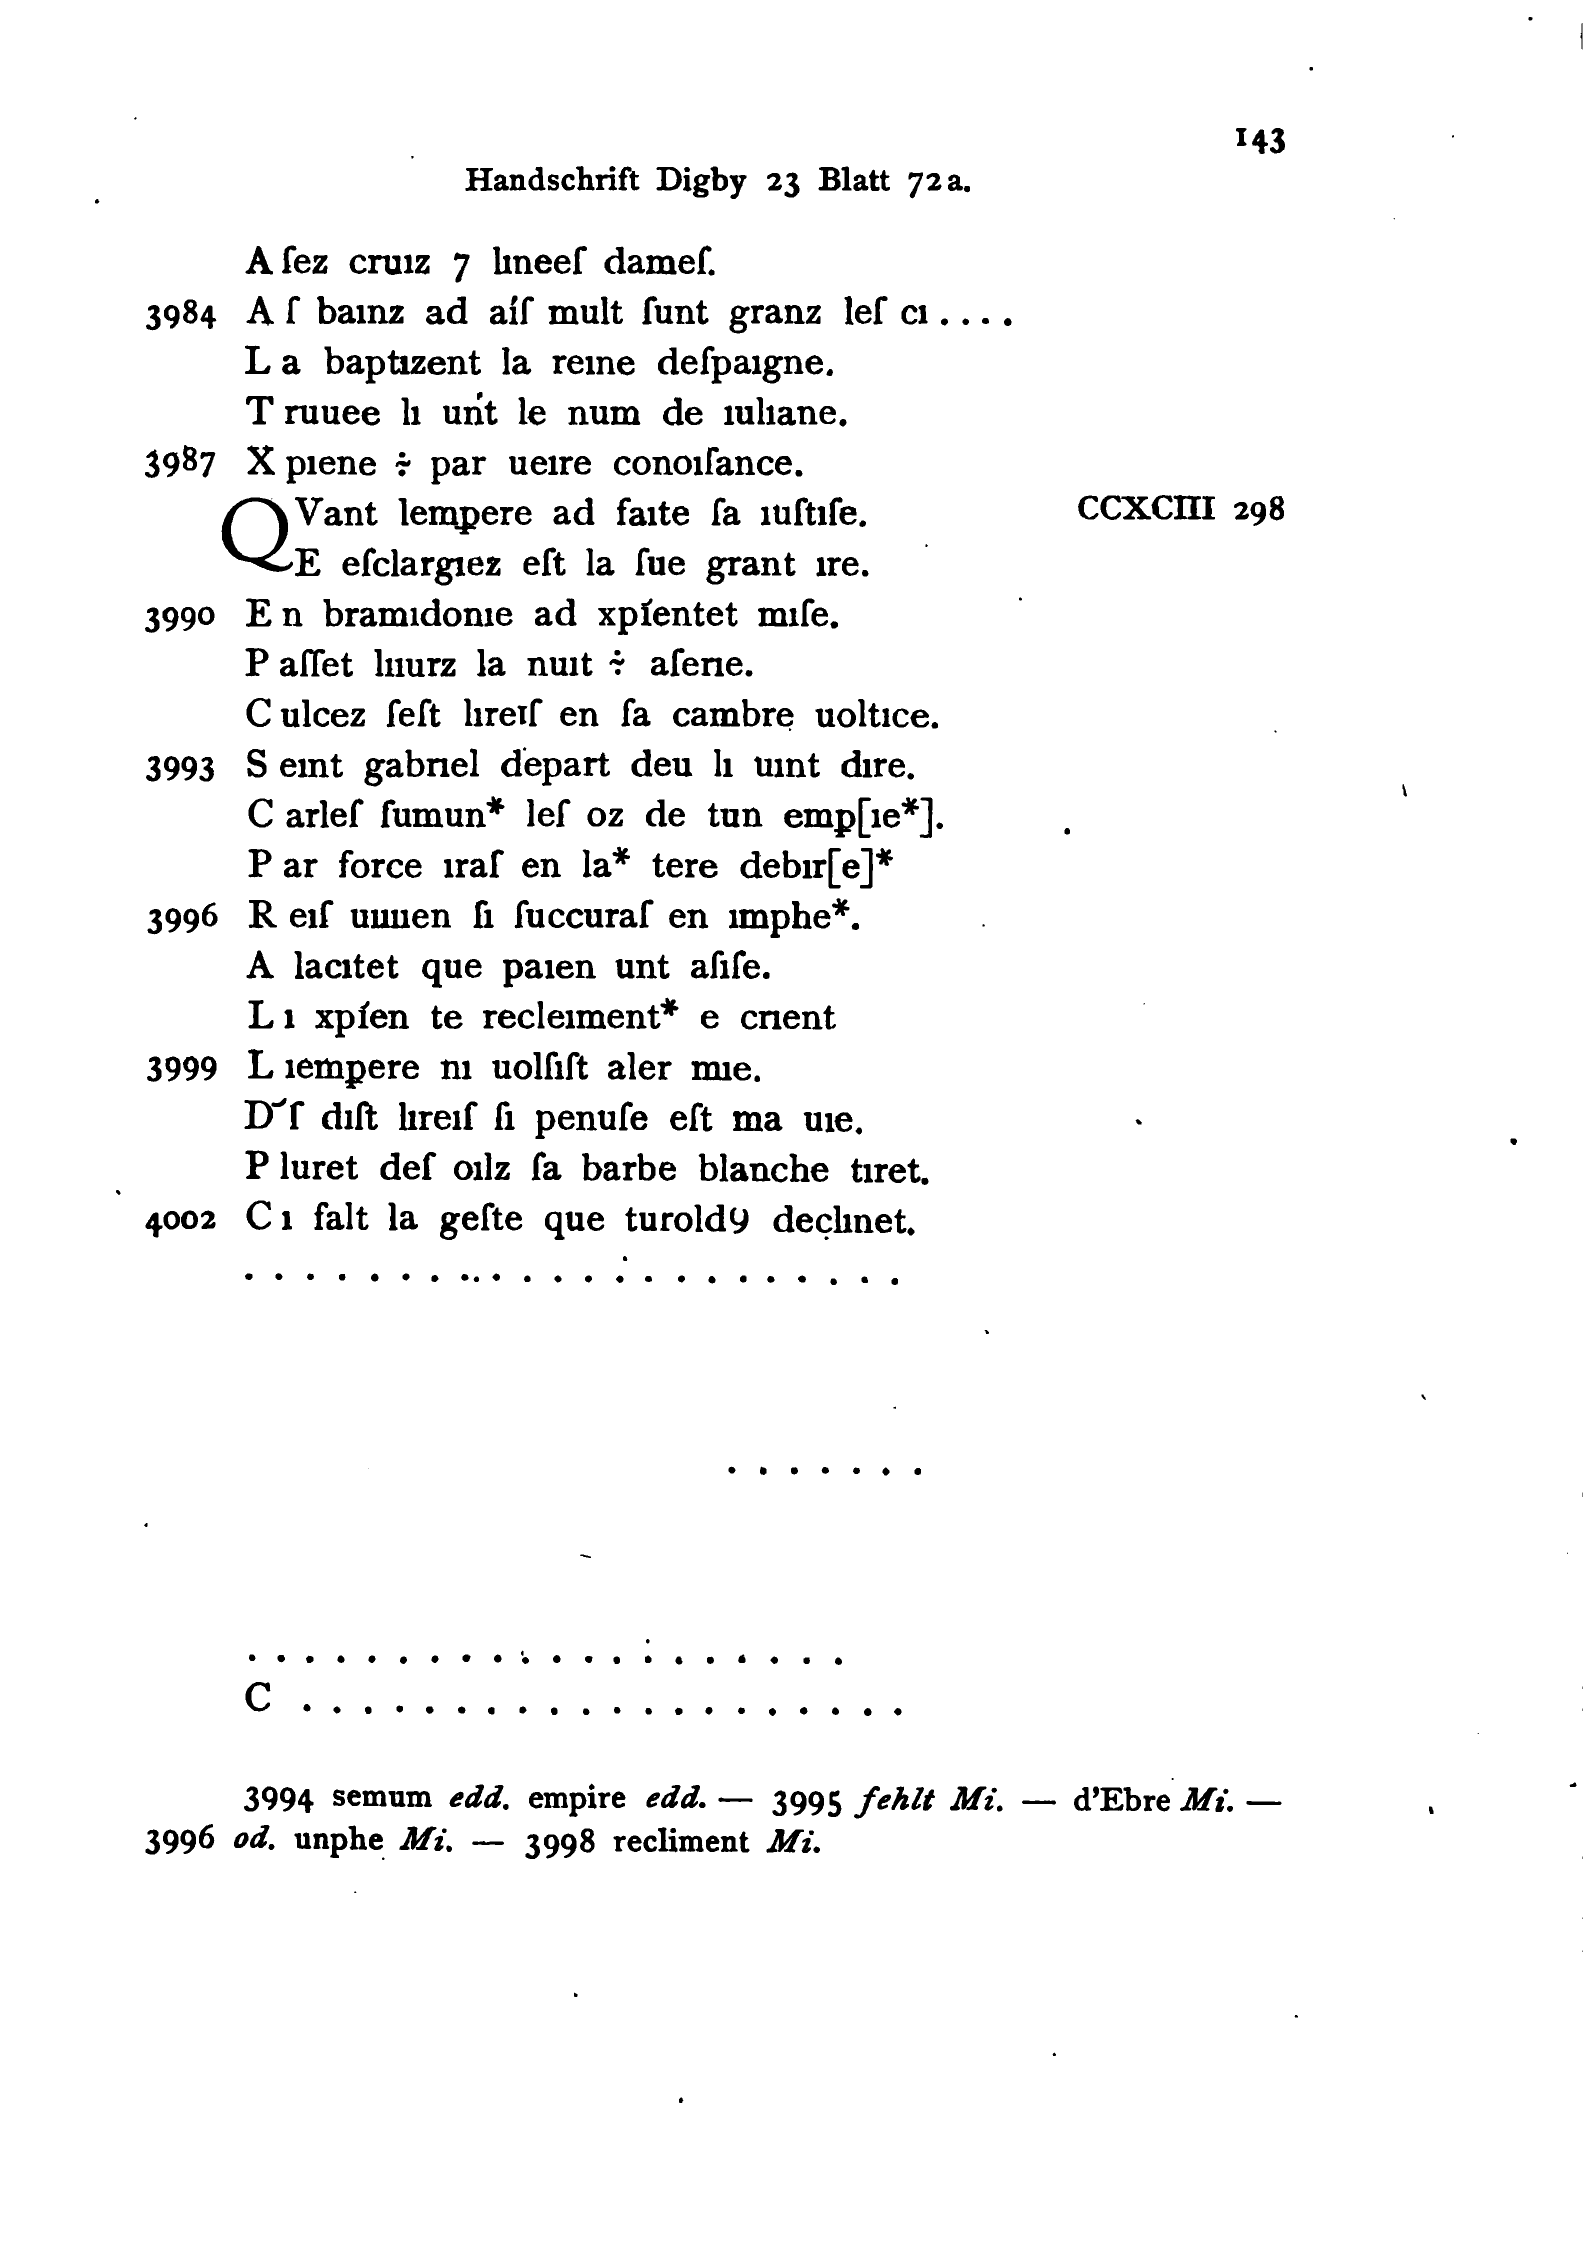 143
Handschrift Digby 23 Blatt 72a.
A ſez cruız 7 lıneeſ dameſ.
3984 A ſ baınz ad aíſ mult ſunt granz leſ cı . . . .
L a baptızent la reıne deſpaıgne.
T ruuee lı uńt le num de ıulıane.
3987 X pıene ÷ par ueıre conoıſance.
QVant lempere ad faıte ſa ıuſtıſe. CCXCIII 298
E eſclargıez eſt la ſue grant ıre.
3990 E n bramıdonıe ad xpíentet mıſe.
P aſſet lııurz la nuıt ÷ aſerıe.
C ulcez ſeſt lıreıſ en ſa cambrę uoltıce.
3993 S eınt gabrıel depart deu lı uınt dıre.
C arleſ ſumun* leſ oz de tun emp[ıe*].
P ar force ıraſ en la* tere debır[e]*
3996 R eıſ uıuıen ſı ſuccuraſ en ımphe*.
A lacıtet que paıen unt aſıſe.
L ı xpíen te recleıment* e crıent
3999 L ıempere nı uolſıſt aler mıe.
D ́ſ dıſt lıreıſ ſı penuſe eſt ma uıe.
P luret deſ oılz ſa barbe blanche tıret.
4002 C ı falt la geſte que turold9 declınet.
. . . . . . . . . . . . . . . . . . . . . .
. . . . . . .
. . . . . . . . . . . . . . . . . . . .
C . . . . . . . . . . . . . . . . . . . .
3994 semum edd. empire edd. — 3995 fehlt Mi. — d'Ebre Mi. —
3996 od. unphe Mi. — 3998 recliment Mi.